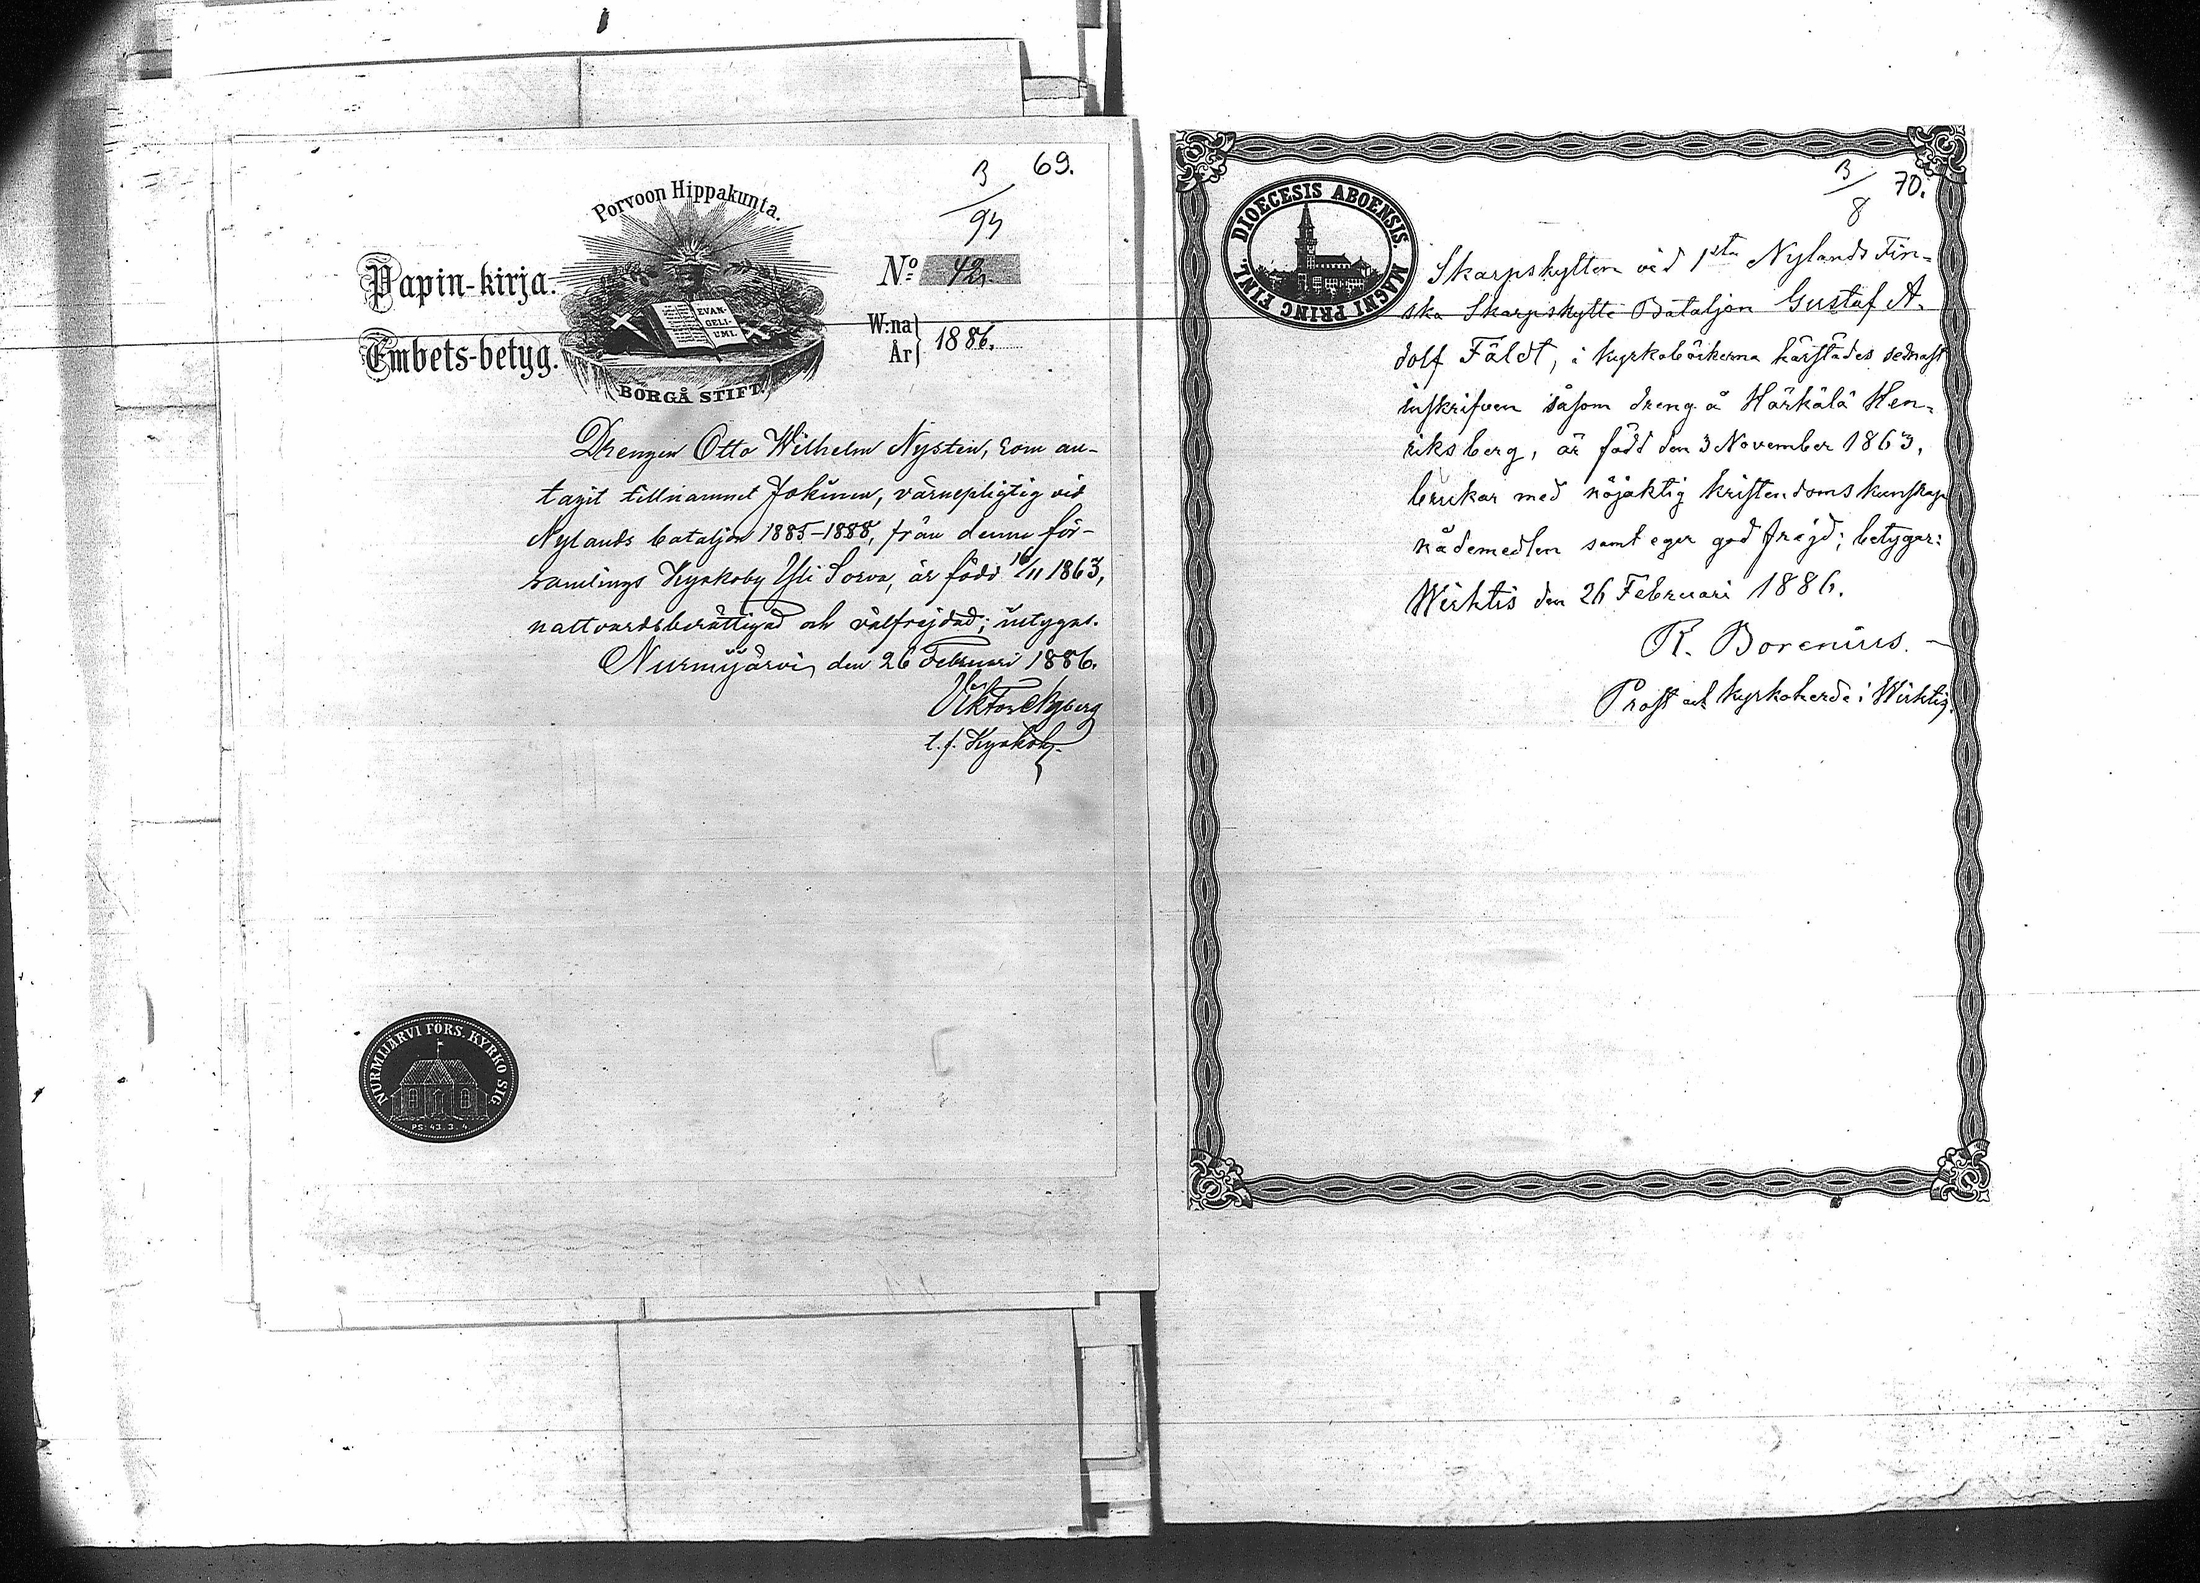 69.
B/93
Porvoon Hippakunta.
Papin-kirja.
Embets-betyg.
EVAN-
GELI-
UMI.
BORGÅ STIFT.
No 42.
W:na
År } 1886.
Drengen Otto Wilhelm Nystén, som an-
tagit tillnamnet Jokinen, värnepligtig vid
Nylands bataljon 1885-1888, från denna för-
samlings Kyrkoby Yli Sorva, är född 16/11 1863,
nattvardsberättigad och välfrejdad; intygas.
Nurmijärvi, den 26 Februari 1886.
Viktor
t. f. Kyrkoh.
NURMIJÄRVI FÖRS. KYRKO SIG.
PS: 43. 3. 4.
70.
B/8
DIOECESIS ABOENSIS. MAGNI PRINC FINL.
Skarpskytten vid 1sta Nylands Fin-
ska Skarpskytte Bataljon Gustaf A-
dolf Fäldt, i kyrkoböckerna härstädes sednast
inskrifven såsom dreng å Härkälä Hen-
riksberg, är född den 3 November 1863,
brukar med nöjaktig kristendomskunskap
nådemedlen samt eger god frejd; betygar:
Wichtis den 26 Februari 1886.
R. Borenius.
Prost och kyrkoherde i Wichtis.